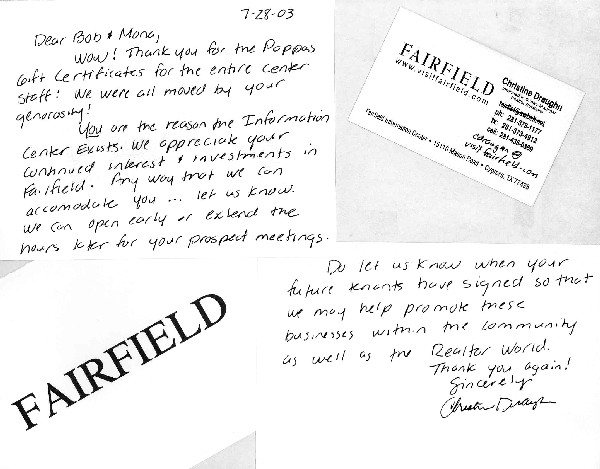 7-28-03
Dear Bob & Mona,
Wow! Thank you for the Pappas
Gift Certificates for the entire Center
Staff! We were all moved by your
generosity!
You are the reason the Information
Center Exists. We appreciate your
continued interest & investments in
Fairfield. Any way that we can
accomodate you ... let us know.
We can open early or extend the
hours later for your prospect meetings.
FAIRFIELD
www.visitfairfield.com
Christine Draughn
ph: 281-373-1177
cell:
cdraughn@
visitfairfield.com
Fairfield Information Center • Cypress, TX 77433
FAIRFIELD
Do let us know when your
future tenants have signed so that
we may help promote these
businesses within the community
as well as the Realtor World.
Thank you again!
Sincerely
Christine Draughn